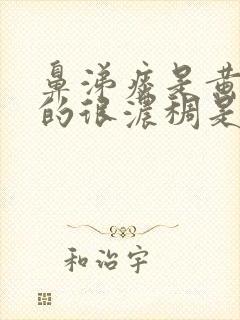 鼻涕痰是黄
的很浓稠是
和治宇